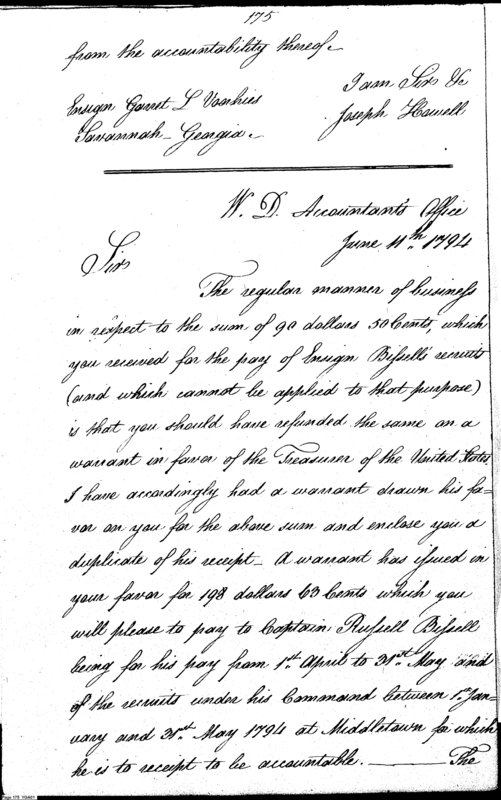 175
from the accountability thereof.
I am Sir &c
Ensign Garret L Vanhies
Joseph Howell
Savannah - Georgia.
W. D. Accountant's Office
June 11th. 1794
Sir
The regular manner of business
in respect to the sum of 90 dollars 50 Cents, which
you received for the pay of Ensign Bissell's recruits
(and which cannot be applied to that purpose)
is that you should have refunded the same on a
warrant in favor of the Treasurer of the United States.
I have accordingly had a warrant drawn his fa-
vor on you for the above sum and enclose you a
duplicate of his receipt - A warrant has issued in
your favor for 198 dollars 63 Cents which you
will please to pay to Captain Russell Bissell
being for his pay from 1st. April to 31st. May and
of the recruits under his Command between 1st Jan-
uary and 31st. May 1794 at Middletown for which
he is to receipt to be accountable. ——— The